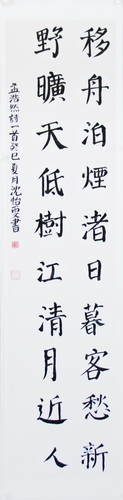 移舟泊煙渚日暮客愁新
野曠天低樹江清月近人
孟浩然詩一首癸巳夏月沈怡雯書